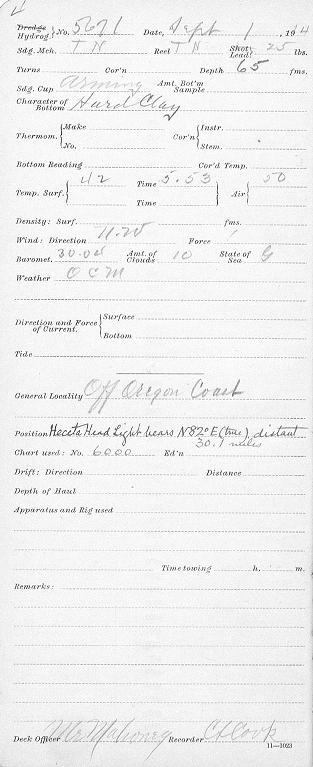 4
Dredge
Hydrog. } No. 5671 Date, Sept 1, 1914
Sdg. Mch. T N Reel T N Shot Lead 25 lbs.
Turns Cor'n Depth 65 fms.
Sdg. Cup Arming Amt. Bot'm Sample
Character of Bottom Hard Clay
Thermom. { Make Cor'n { Instr.
No. Stem.
Bottom Reading Cor'd Temp.
Temp. Surf. { 42 Time 5.53 Air { 50
Time
Density: Surf. fms.
Wind: Direction Force 1
Baromet. 30.00 Amt. of Clouds 10 State of Sea G
Weather O C M
Direction and Force of Current. { Surface
Bottom
Tide
General Locality Off Oregon Coast
Position Heceta Head Light bears N82°E (true) distant
30.1 miles
Chart used: No. 6000 Ed'n
Drift: Direction Distance
Depth of Haul
Apparatus and Rig used
Time towing h. m.
Remarks:
Deck Officer Mr. Mahoney Recorder Cook
11—1023